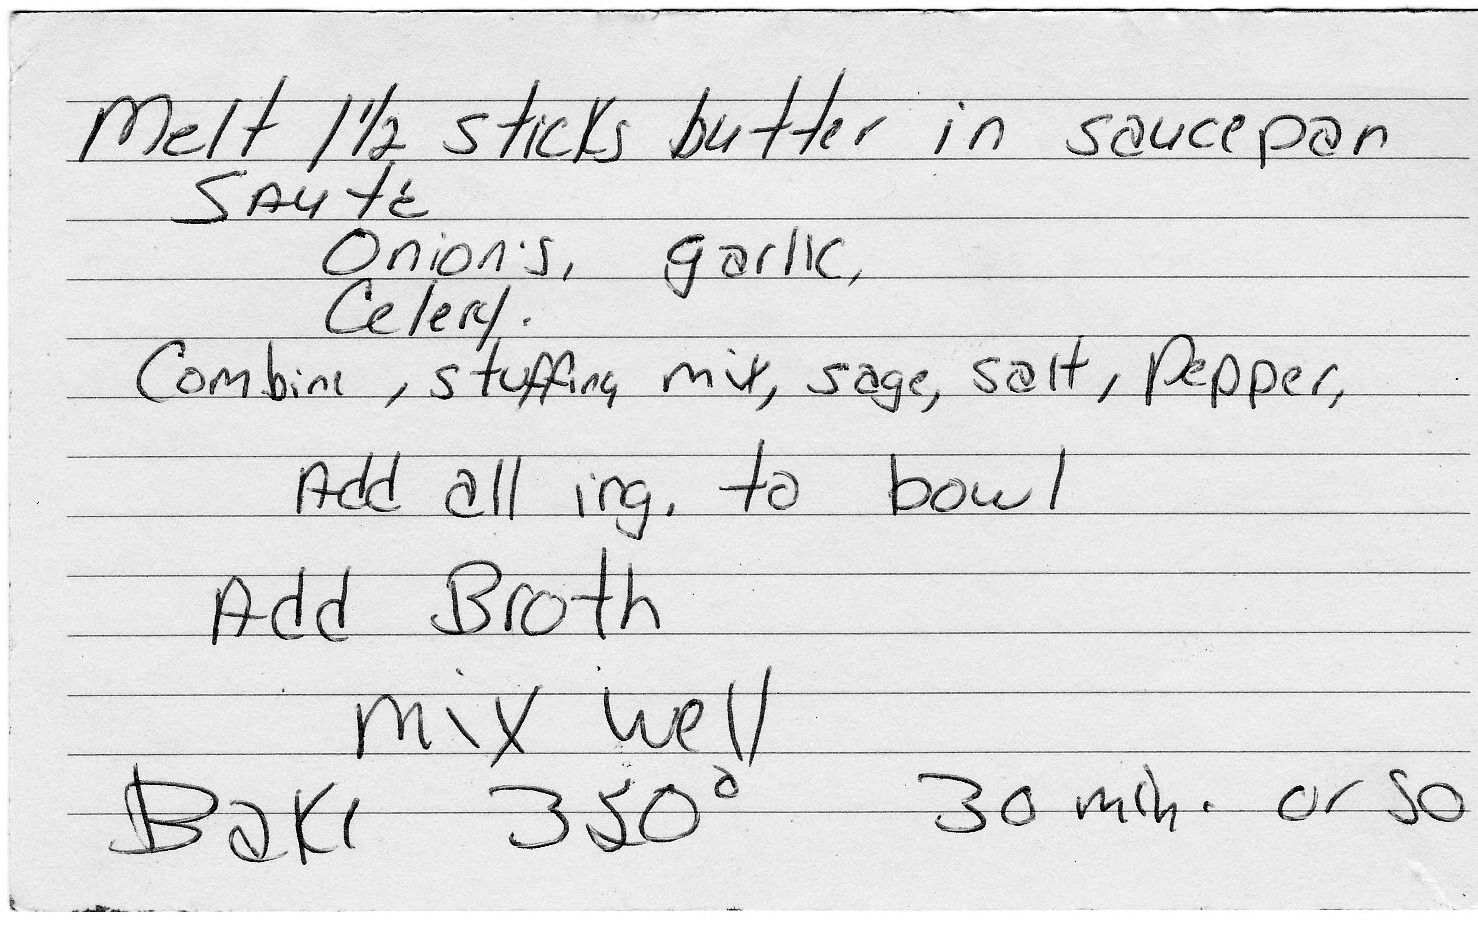 Melt 1 1/2 sticks butter in saucepan
SAuté
Onion's, garlic,
Celery.
Combine, stuffing mix, sage, salt, Pepper,
Add all ing. to bowl
Add Broth
mix well
Bake 350° 30 min. or so